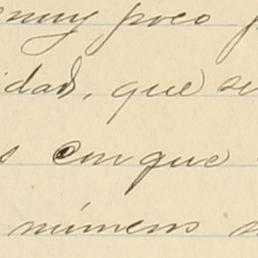 muy poco
idad, que se
s con que
números